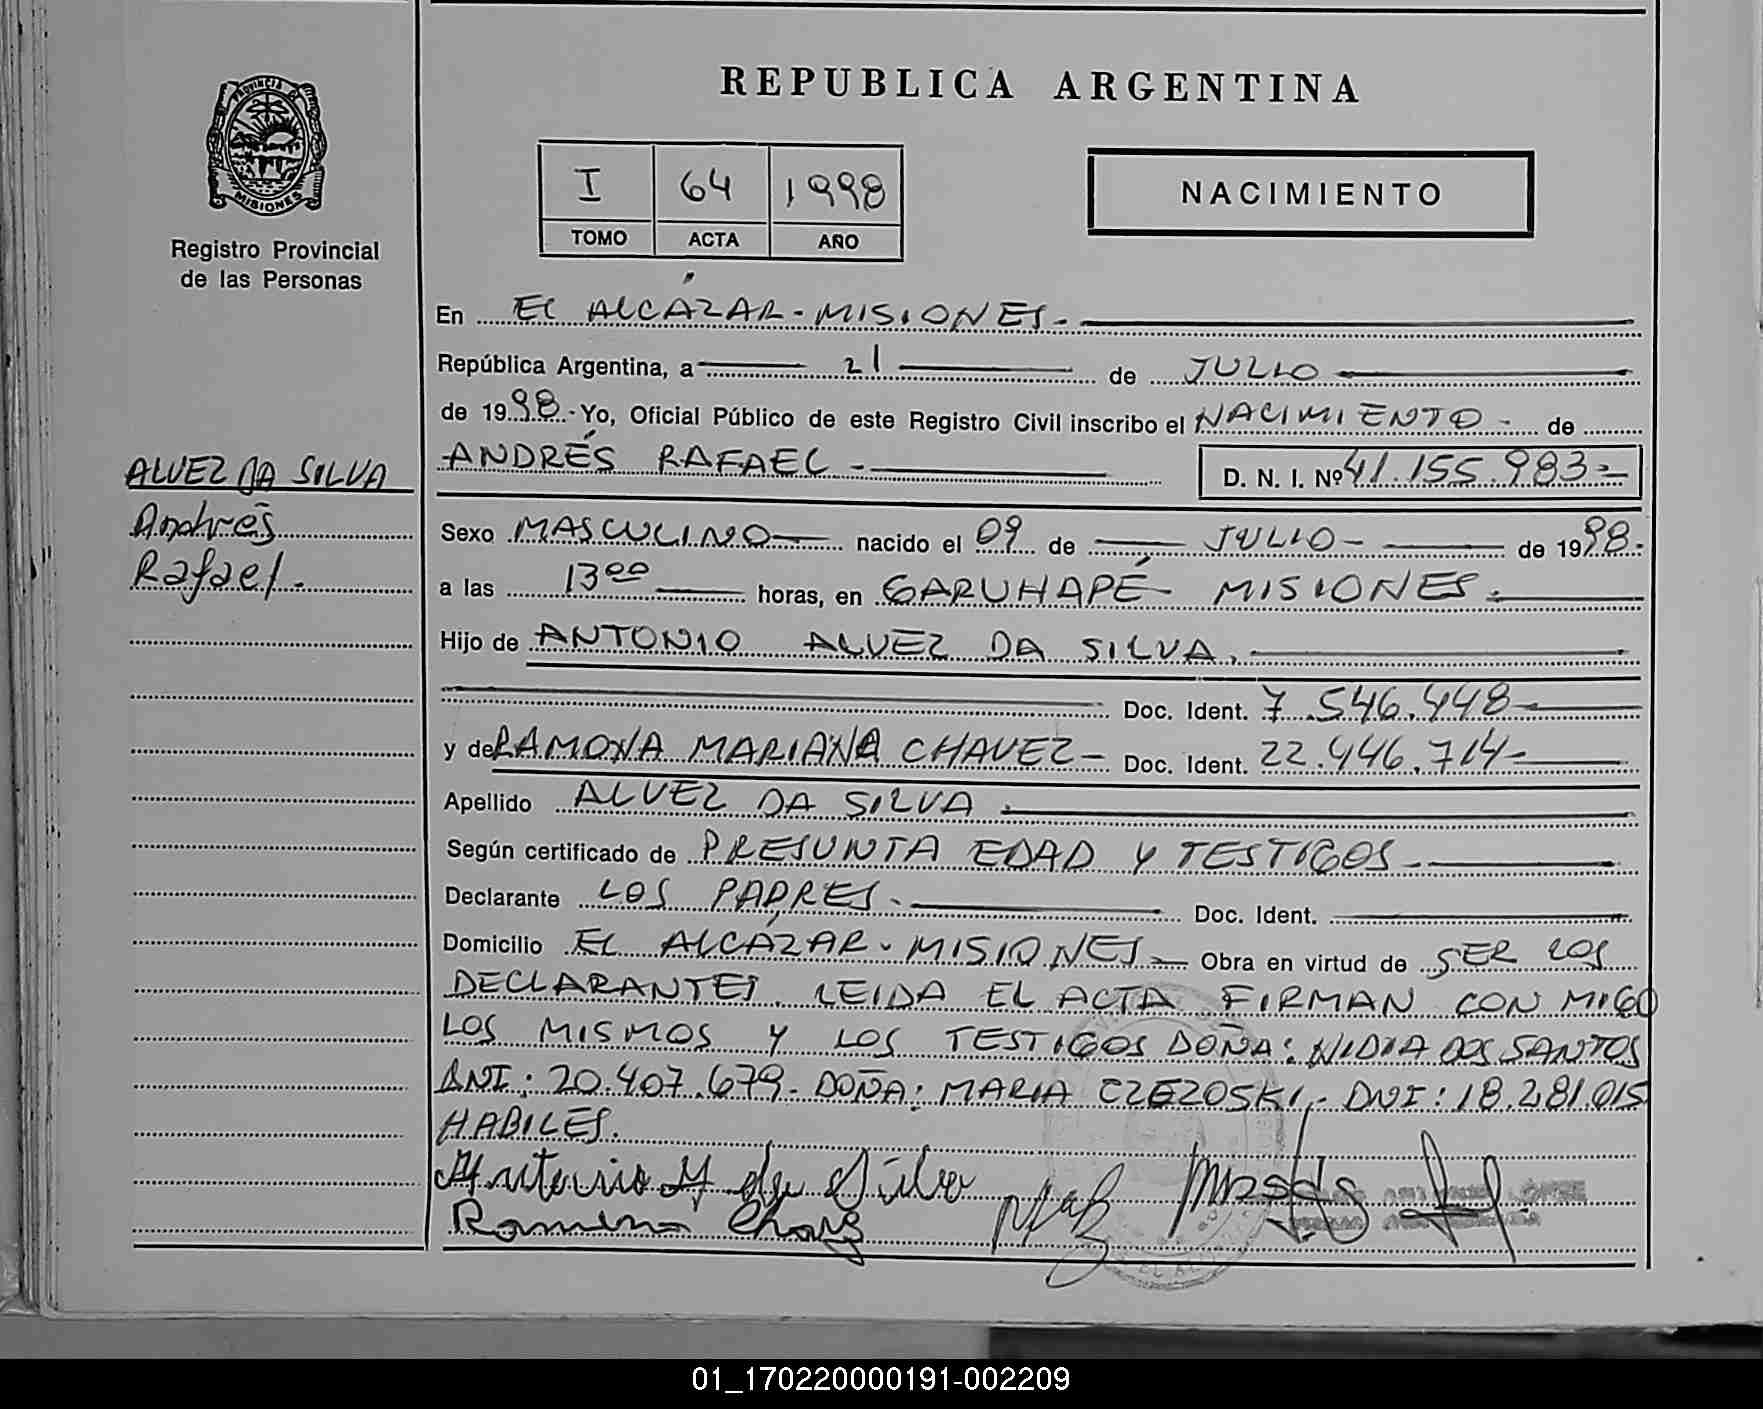 REPUBLICA ARGENTINA
PROVINCIA DE MISIONES
Registro Provincial
de las Personas
I 64 1998
TOMO ACTA AÑO
NACIMIENTO
En EL ALCÁZAR - MISIONES.
República Argentina, a 21 de JULIO
de 1998.- Yo, Oficial Público de este Registro Civil inscribo el NACIMIENTO - de
ANDRÉS RAFAEL - D. N. I. Nº 41.155.983=
ALVEZ DA SILVA
Andrés
Rafael.
Sexo MASCULINO nacido el 09 de JULIO - de 1998.
a las 13 00 horas, en GARUHAPÉ - MISIONES.
Hijo de ANTONIO ALVEZ DA SILVA.
Doc. Ident. 7.546.448
y de RAMONA MARIANA CHAVEZ - Doc. Ident. 22.446.714
Apellido ALVEZ DA SILVA.
Según certificado de PRESUNTA EDAD Y TESTIGOS.
Declarante LOS PADRES. Doc. Ident.
Domicilio EL ALCÁZAR - MISIONES - Obra en virtud de SER LOS
DECLARANTES. LEIDA EL ACTA FIRMAN CON MIGO
LOS MISMOS Y LOS TESTIGOS DOÑA: NIDIA DOS SANTOS
DNI: 20.407.679- DOÑA: MARIA CZEZOSKI - DNI: 18.281.015
HABILES.
Antonio A da Silva
Ramona Chavez
01_170220000191-002209